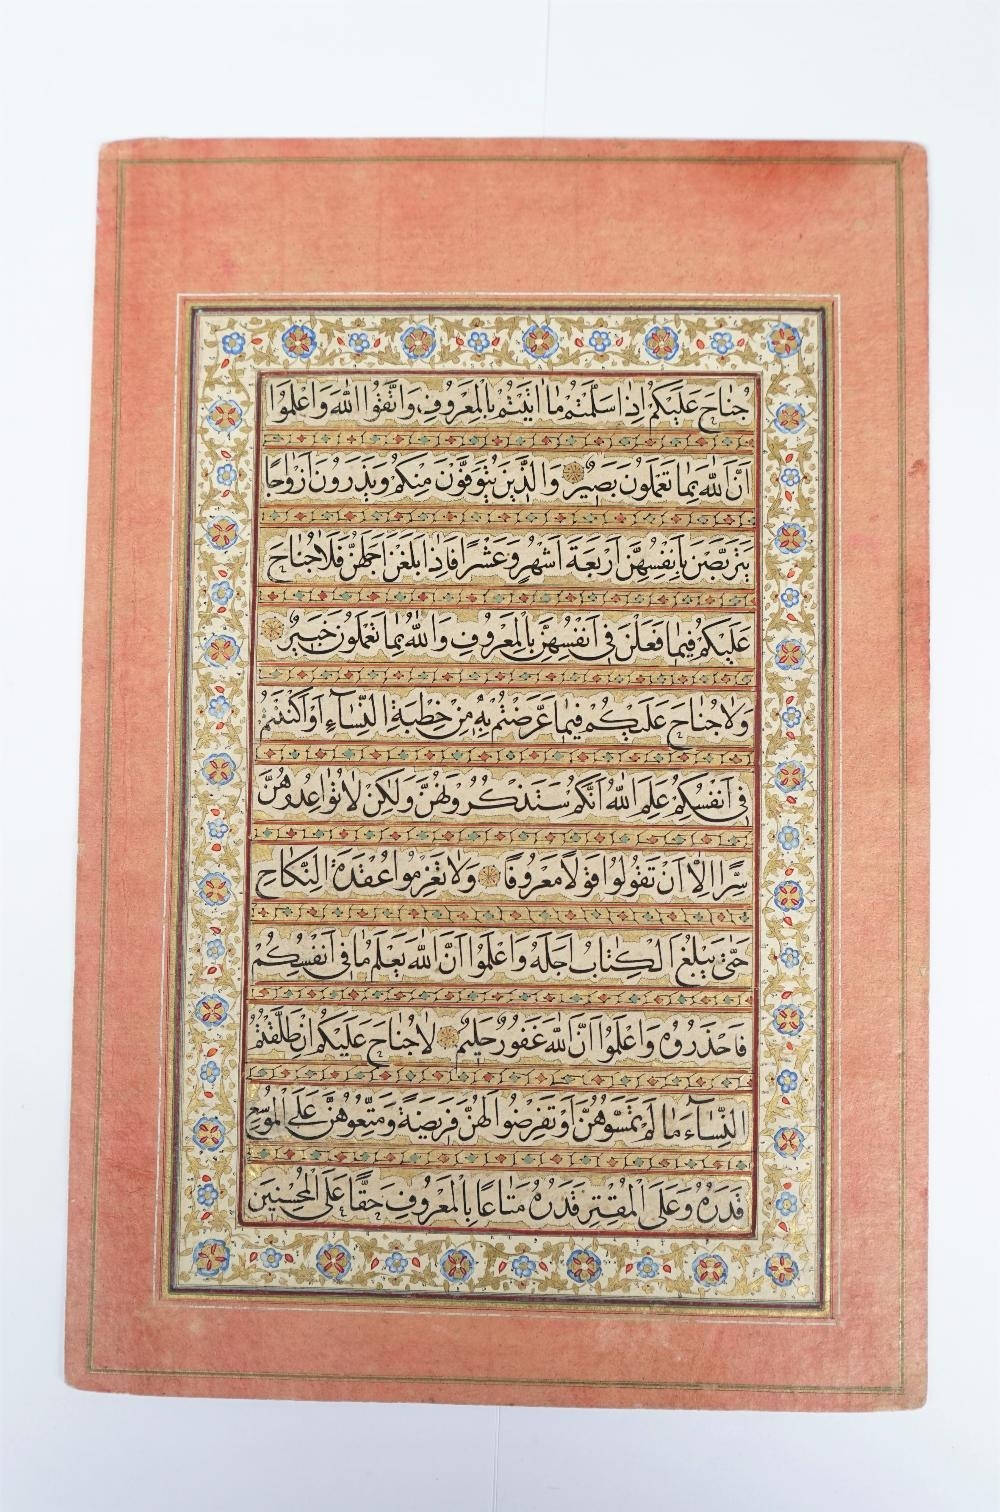 جُنَاحَ عَلَيْكُمْ اِذَا سَلَّمْتُمْ مَا اٰتَيْتُمْ بِالْمَعْرُوفِ وَاتَّقُوا اللّٰهَ وَاعْلَمُوا
اَنَّ اللّٰهَ بِمَا تَعْمَلُونَ بَصِيرٌ وَالَّذِينَ يُتَوَفَّوْنَ مِنْكُمْ وَيَذَرُونَ اَزْوَاجًا
يَتَرَبَّصْنَ بِاَنْفُسِهِنَّ اَرْبَعَةَ اَشْهُرٍ وَعَشْرًا فَاِذَا بَلَغْنَ اَجَلَهُنَّ فَلَا جُنَاحَ
عَلَيْكُمْ فِيمَا فَعَلْنَ فِي اَنْفُسِهِنَّ بِالْمَعْرُوفِ وَاللّٰهُ بِمَا تَعْمَلُونَ خَبِيرٌ
وَلَا جُنَاحَ عَلَيْكُمْ فِيمَا عَرَّضْتُمْ بِهِ مِنْ خِطْبَةِ النِّسَآءِ اَوْ اَكْنَنْتُمْ
فِي اَنْفُسِكُمْ عَلِمَ اللّٰهُ اَنَّكُمْ سَتَذْكُرُونَهُنَّ وَلٰكِنْ لَا تُوَاعِدُوهُنَّ
سِرًّا اِلَّا اَنْ تَقُولُوا قَوْلًا مَعْرُوفًا وَلَا تَعْزِمُوا عُقْدَةَ النِّكَاحِ
حَتّٰى يَبْلُغَ الْكِتَابُ اَجَلَهُ وَاعْلَمُوا اَنَّ اللّٰهَ يَعْلَمُ مَا فِي اَنْفُسِكُمْ
فَاحْذَرُوهُ وَاعْلَمُوا اَنَّ اللّٰهَ غَفُورٌ حَلِيمٌ لَا جُنَاحَ عَلَيْكُمْ اِنْ طَلَّقْتُمُ
النِّسَآءَ مَا لَمْ تَمَسُّوهُنَّ اَوْ تَفْرِضُوا لَهُنَّ فَرِيضَةً وَمَتِّعُوهُنَّ عَلَى الْمُوسِعِ
قَدَرُهُ وَعَلَى الْمُقْتِرِ قَدَرُهُ مَتَاعًا بِالْمَعْرُوفِ حَقًّا عَلَى الْمُحْسِنِينَ